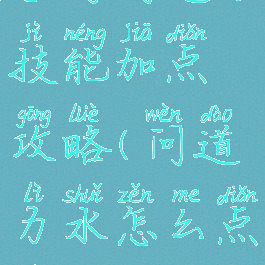 jì néng jiā diǎn
技能加点
gōng lüè wèn dào
攻略(问道
lì shuǐ zěn me diǎn
力水怎么点